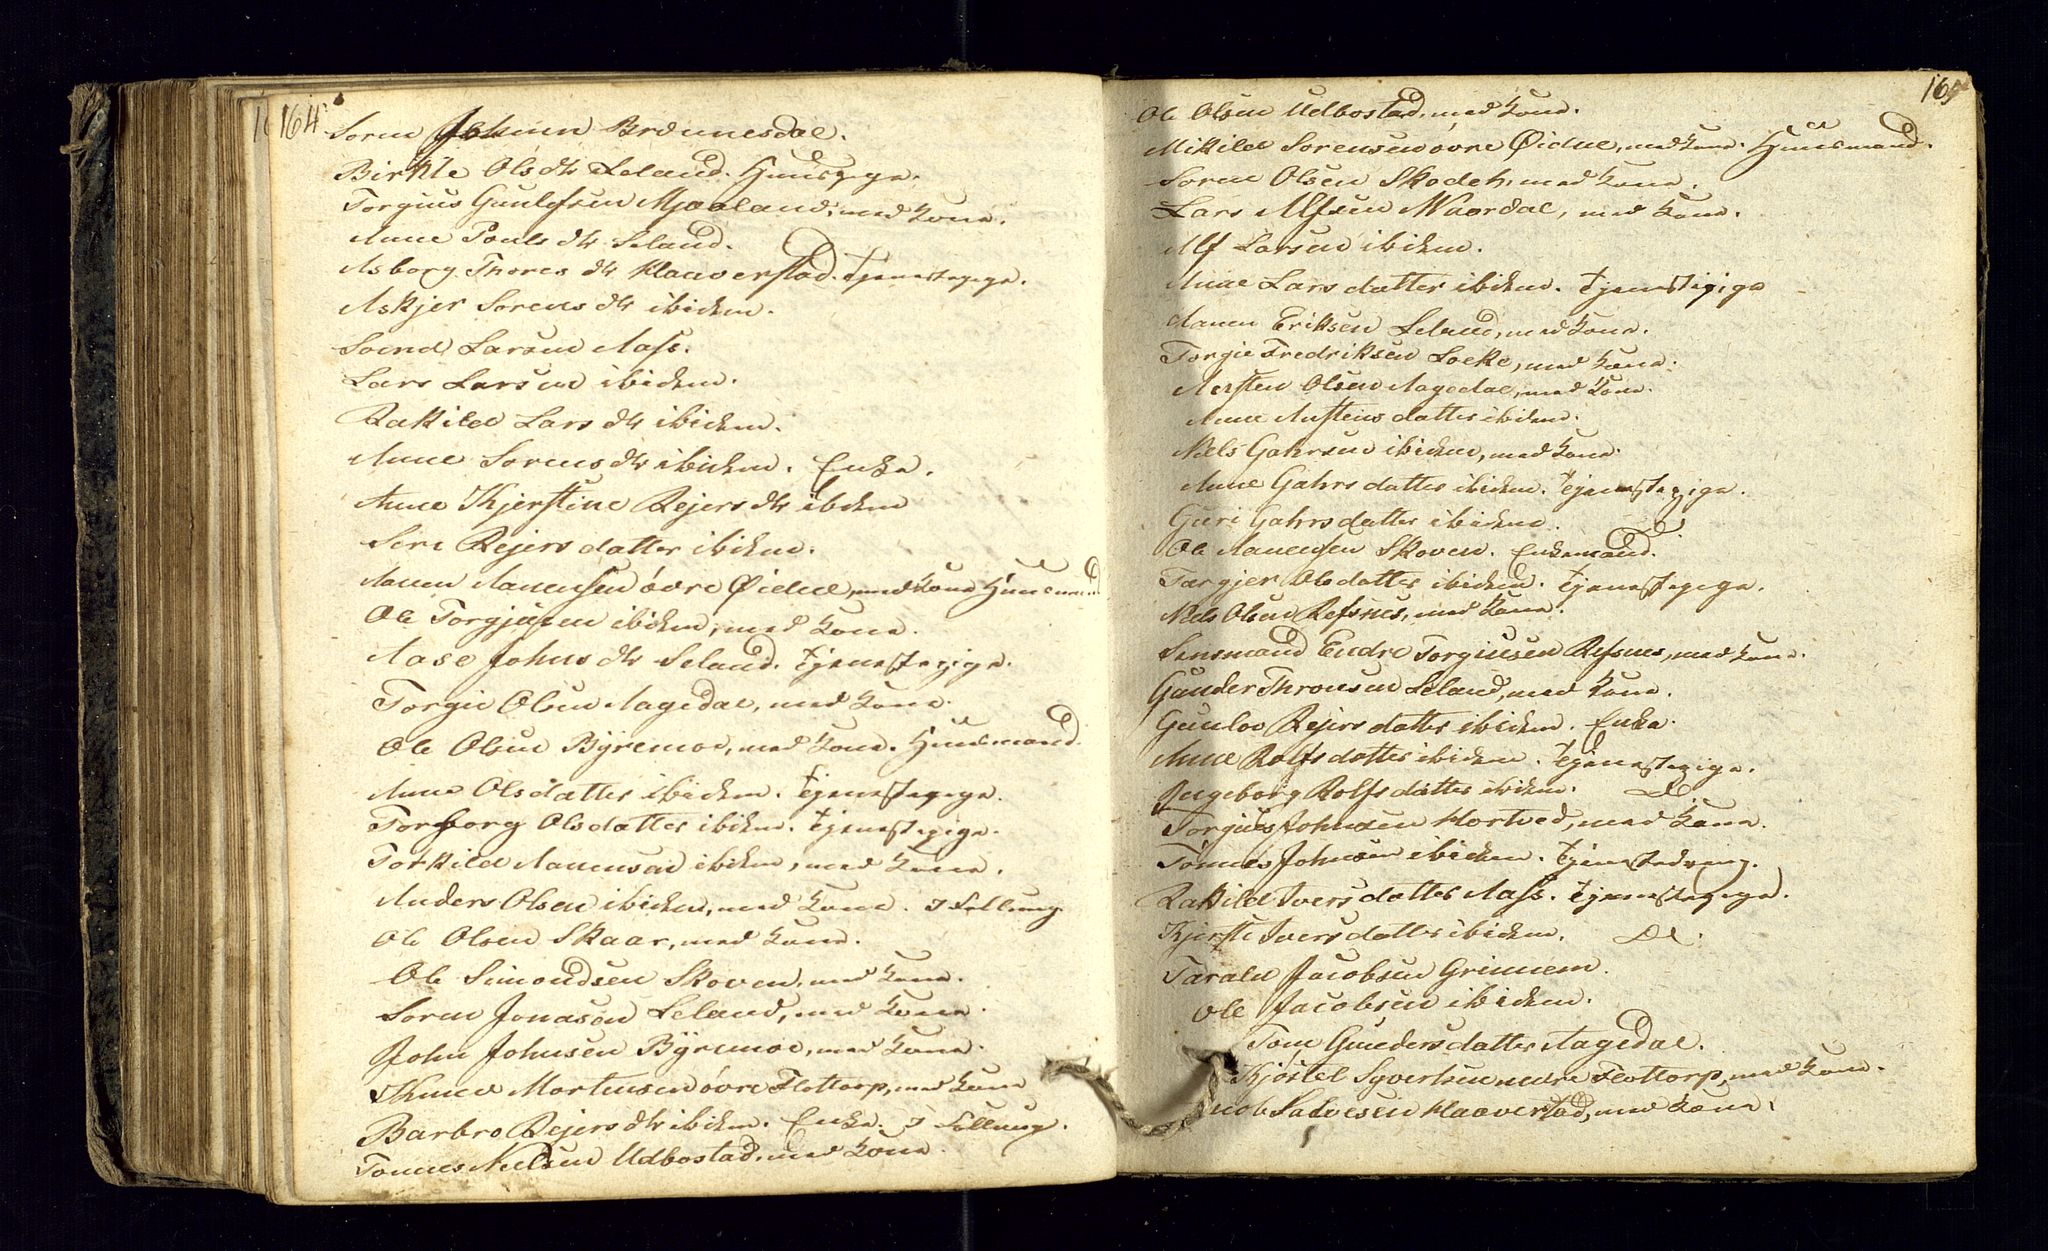 164
Soren Johnsen Bromesdal.
Birkte Olsdtr Seland. Huuspige.
Torgius Gunlefsen Mjaaland, med Kone.
Anne Pouls dtr Seland.
Asborg Thores dtr Klaaverstad. Tjenestepige.
Askjer Sorens dtr ibidem.
Soend Larsen Aass.
Lars Larsen ibidem.
Rakilel Lars dtr ibidem.
Anne Sorens dtr ibidem. Enke.
Anne Kjerstine Rejers dtr ibidem
Siri Rejers datter ibidem.
Aanen Aanensen övre Øidne, med Kone Huusmand
Ole Torgjusen ibidem, med Kone.
Aase Johns dtr Seland. Tjenestepige.
Torgie Olsen Aagedal, med Kone.
Ole Olsen Byremoe, med Kone. Huusmand.
Anne Olsdatter ibidem. Tjenestepige.
Torborg Olsdatter ibidem. Tjenestepige.
Torkild Aanensen ibidem, med Kone.
Anders Olsen ibidem, med Kone. 3 Skilling
Ole Olsen Skaar, med Kone.
Ole Simondsen Skoven, med Kone.
Soren Jonasen Seland, med Kone.
John Johnsen Byremoe, med Kone.
Mortensen övre Flottorp, med Kone
Barbro Rejers dtr ibidem. Enke. 3 Skilling.
Tonnes Nielsen Udbostad, med Kone.
165
Ole Olsen Udbostad, med Kone.
Mikilel Sorensen övre Øidne, med Kone. Huusmand.
Soren Olsen Skodeh, med Kone.
Lars Alfsen Waardal, med Kone.
Alf Larsen ibidem.
Anne Lars datter ibidem. Tjenestepige
Aanen Eriksen Seland, med Kone.
Torgie Fredriksen Loeke, med Kone.
Austen Olsen Aagedal, med Kone.
Anne Austens datter ibidem.
Niels Gahrsen ibidem, med Kone.
Anne Gahrs datter ibidem. Tjenestepige.
Guri Gahrs datter ibidem.
Ole Aanensen Skoven. Enkemand.
Targjer Olsdatter ibidem. Tjenestepige.
Niels Olsen Refsnes, med Kone.
Lensmand Endre Torgiusen Refsnes, med Kone.
Gunder Thronsen Seland, med Kone.
Gunloe Rejers datter ibidem. Enke.
Anne Rolfs datter ibidem. Tjenestepige.
Ingeborg Rolfs datter ibidem. Do
Torgius Johnsen Hortved, med Kone.
Tonnes Johnsen ibidem. Tjenestedreng.
Rakilel Ivers datter Aass. Tjenestepige.
Kjersti Ivers datter ibidem. Do.
Tarald Jacobsen Grinnem.
Ole Jacobsen ibidem.
Tone Gunders datter Aagedal.
Kjøstel Syvertsen nedre Flottorp, med Kone.
Salvesen Klaaverstad, med Kone.